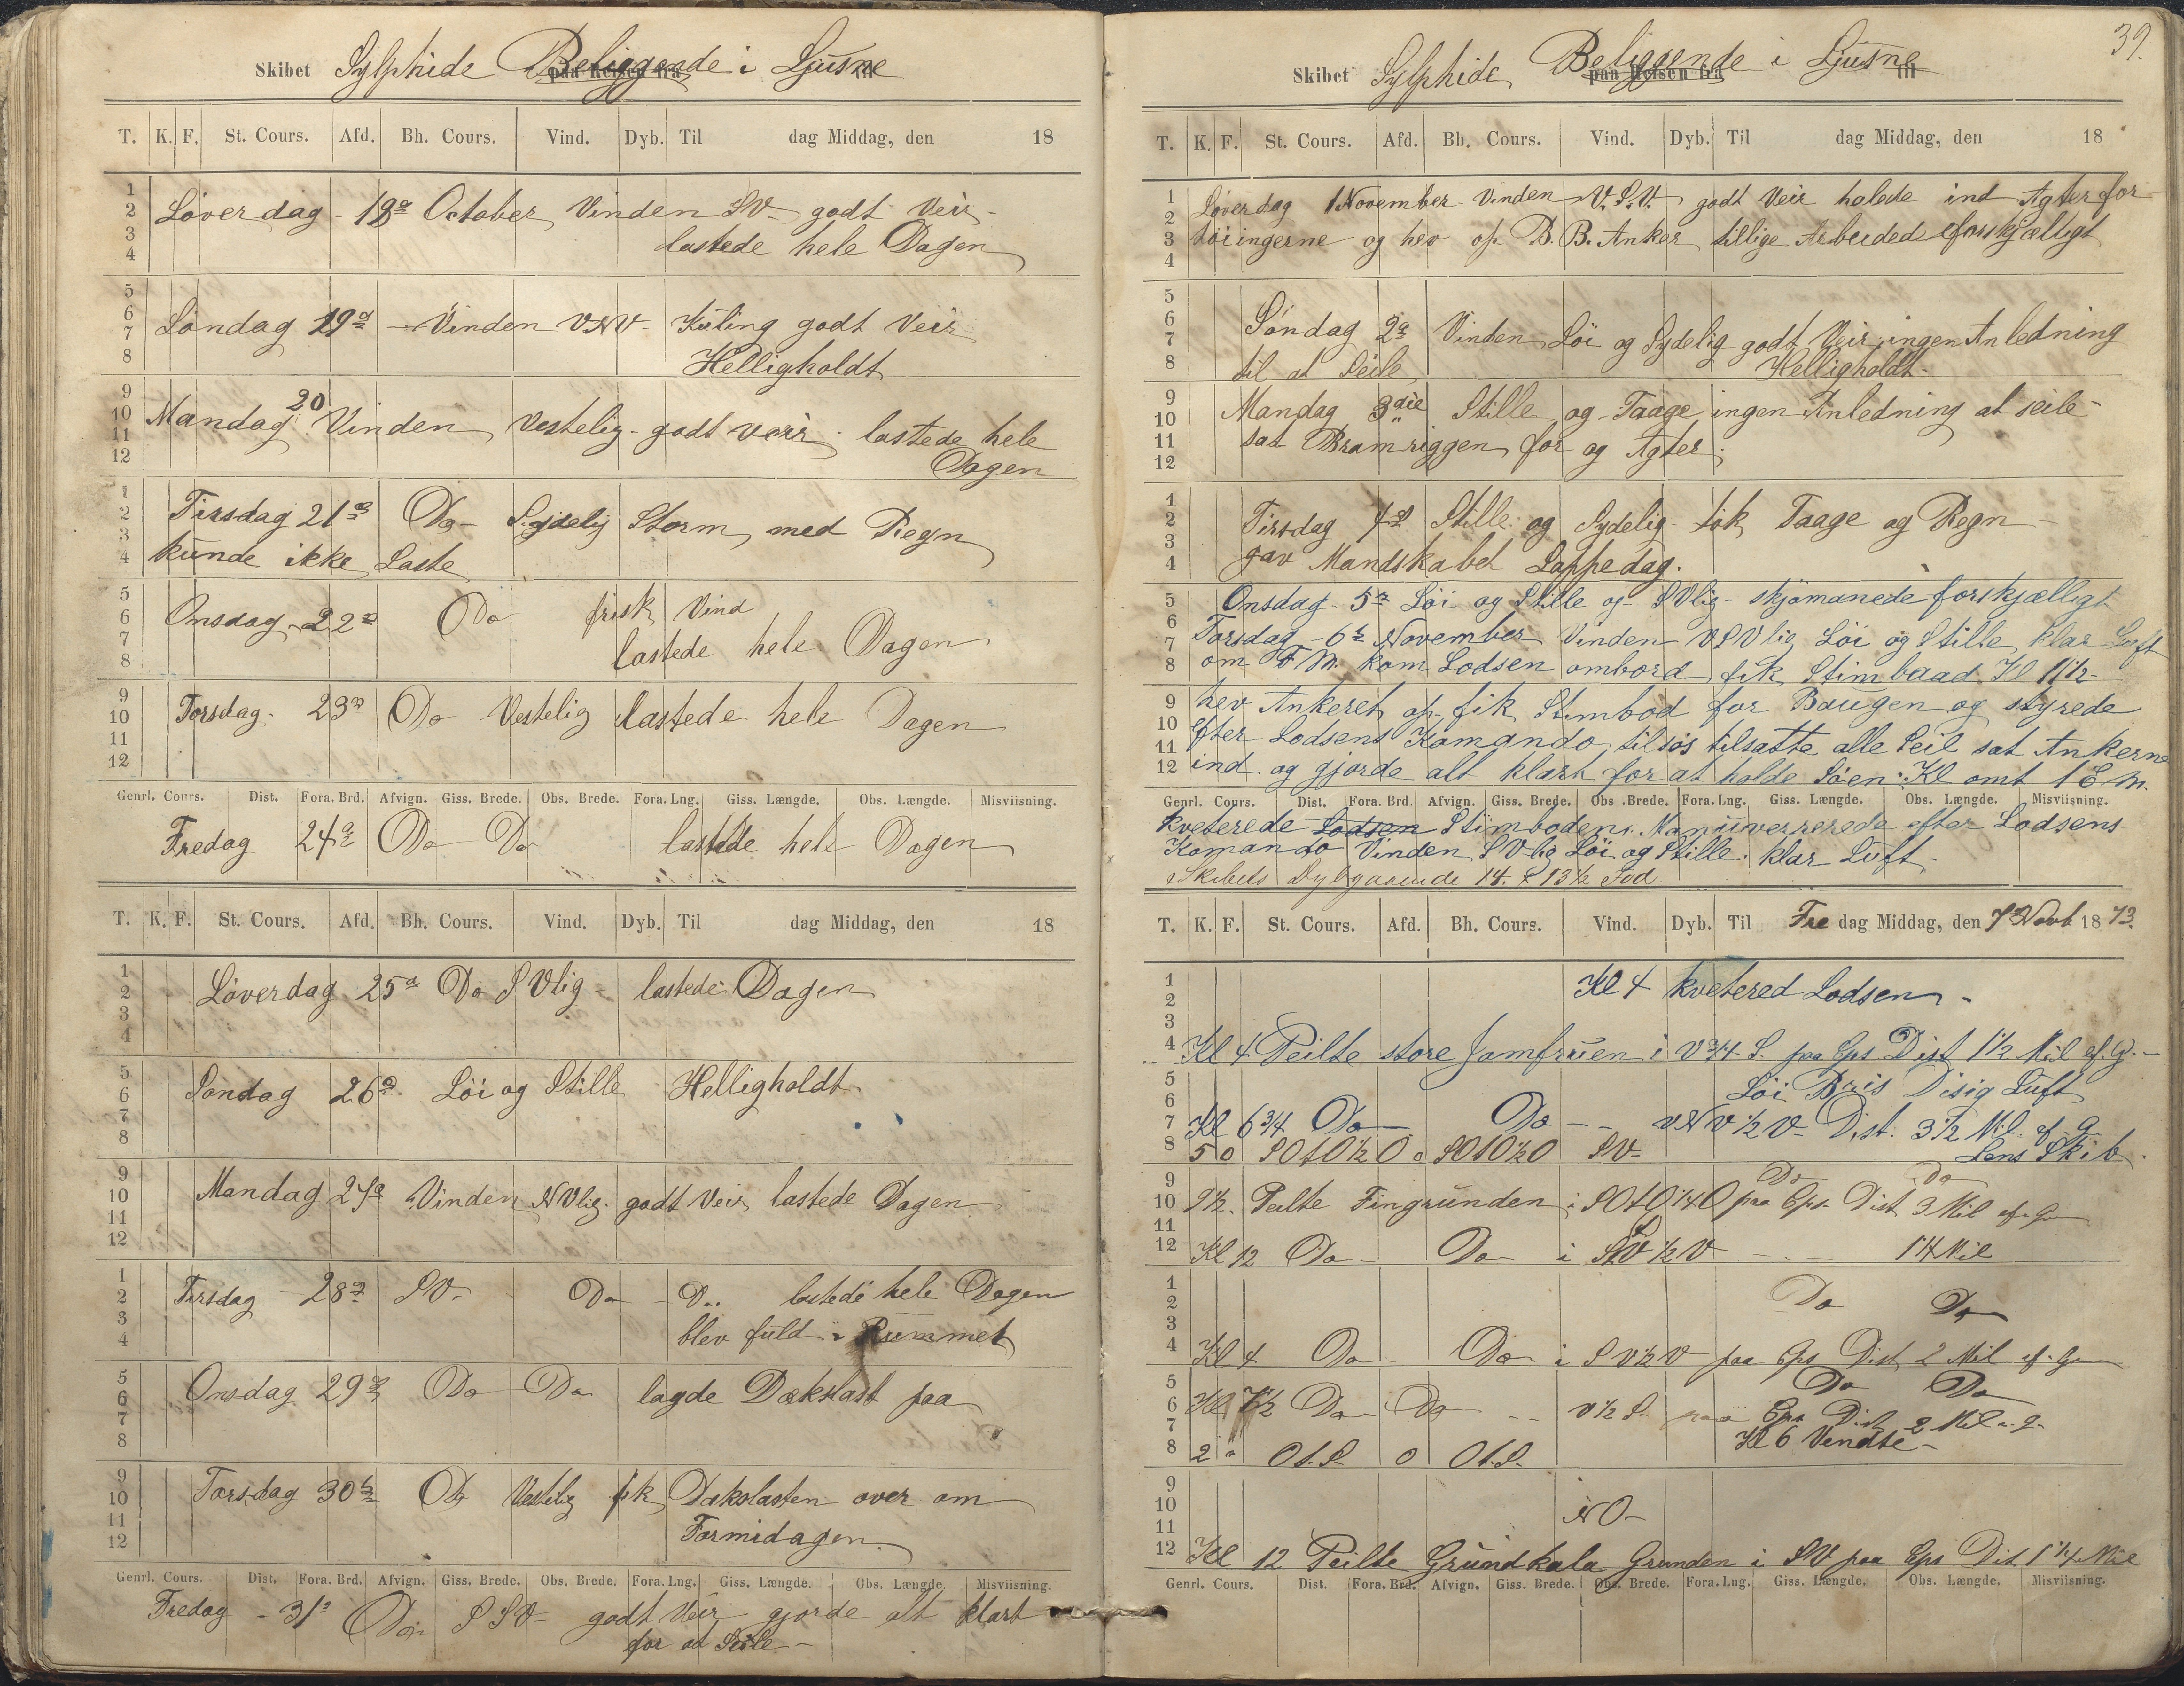 Skibet Sylphide Beliggende i Ljusne
paa Reisen fra til
T. K. F. St. Cours. Afd. Bh. Cours. Vind. Dyb. Til dag Middag, den 18
1
2
3
4
Löverdag - 18de October Vinden SV - godt Veir -
lastede hele Dagen
5
6
7
8
Söndag 19de - Vinden VNV - Kuling godt Veir
Helligholdt
9
10
11
12
Mandag 20 Vinden Vestelig - godt veir - lastede hele
Dagen
1
2
3
4
Tirsdag 21de Do - Sydelig Storm, med Regn
kunde ikke Laste
5
6
7
8
Onsdag - 22de Do frisk Vind
lastede hele Dagen
9
10
11
12
Torsdag - 23de Do Vestelig lastede hele Dagen
Genrl. Cours. Dist. Fora. Brd. Afvign. Giss. Brede. Obs. Brede. Fora. Lng. Giss. Længde. Obs. Længde. Misviisning.
Fredag 24de Do Do lastede hele Dagen
T. K. F. St. Cours. Afd. Bh. Cours. Vind. Dyb. Til dag Middag, den 18
1
2
3
4
Löverdag 25de Do SVlig - lastede Dagen
5
6
7
8
Söndag 26de Löi og Stille Helligholdt
9
10
11
12
Mandag 27de Vinden NVlig. godt Veir lastede Dagen
1
2
3
4
Tirsdag 28de SV - Do - Do lastede hele Dagen
blev fuld i Rummet
5
6
7
8
Onsdag 29de Do Do lagde Dækslast paa
9
10
11
12
Torsdag 30te Do Vestelig fik Dækslasten over om
Formidagen.
Genrl. Cours. Dist. Fora. Brd. Afvign. Giss. Brede. Obs. Brede. Fora. Lng. Giss. Længde. Obs. Længde. Misviisning.
Fredag - 31 Do SSV - godt Veir gjorde alt klart
for at Seile -
39.
Skibet Sylphide Beliggende i Ljusne
paa Reisen fra til
T. K. F. St. Cours. Afd. Bh. Cours. Vind. Dyb. Til dag Middag, den 18
1
2
3
4
Löverdag 1 November - Vinden V.S.V. godt Veir halede ind Agterfor-
töiingerne og hev op B.B. Anker tillige Arbeidede forskjælligt
5
6
7
8
Söndag 2de Vinden Löi og Sydelig godt Veir ingen Anledning
til at Seile Helligholdt -
9
10
11
12
Mandag 3die Stille og Taage ingen Anledning at seile -
sat Bramriggen for og Agter.
1
2
3
4
Tirsdag 4de Stille og Sydelig - tök Taage og Regn -
gav Mandskabet Lappedag.
5
6
7
8
Onsdag - 5te Löi og Stille og SVlig - skjömanede forskjælligt
Torsdag - 6te November Vinden VSVlig Löi og Stille, klar Luft
om FM. kom Lodsen ombord fik Stimbaad Kl 11½ -
9
10
11
12
hev Ankeret op fik Stimbod for Baugen og styrede
efter Lodsens Komando tilsös tilsatte alle Seil sat Ankerne
ind og gjorde alt klart for at holde Söen. Kl omt 1 EM.
Genrl. Cours. Dist. Fora. Brd. Afvign. Giss. Brede. Obs. Brede. Fora. Lng. Giss. Længde. Obs. Længde. Misviisning.
kveterede Lodsen Stimboden. Manuverrerede efter Lodsens
Komando Vinden SVlig Löi og Stille. klar Luft -
Skibets Dybgaaende 14. & 13½ Fod.
T. K. F. St. Cours. Afd. Bh. Cours. Vind. Dyb. Til Fre dag Middag, den 7de Novb 1873.
1
2
3
4
Kl 4 kvetered Lodsen -
Kl 4 Peilte store Jomfruen i V¾ S. paa Cps Dist 1½ Mil af G. -
5
6
7
8
Löi Bris Disig Luft
Kl 6¾ Do - Do - - VNV½V - Dist. 3½ Mil af G
5 0 SOtO½O 0 SOtO½O SV - Lens Skib.
9
10
11
12
Do Do
9½. Peilte Fingrunden i SOtO¼O paa Cps Dist 3 Mil af G
Kl 12 Do - Do i SV½V - . - 1¼ Mil
1
2
3
4
Do Do
Kl 4 Do - Do i SV½V paa Cps Dist 2 Mil af G
5
6
7
8
Do Do
Kl 7½ Do Do - - V½S - paa Cps Dist 2 Mil a. G -
Kl 6 Vendte -
2 " Ot.S. 0 Ot.S.
9
10
11
12
NO -
Kl 12 Peilte Grundkala Grunden i SV paa Cps Dist 1¼ Mil
Genrl. Cours. Dist. Fora. Brd. Afvign. Giss. Brede. Obs. Brede. Fora. Lng. Giss. Længde. Obs. Længde. Misviisning.